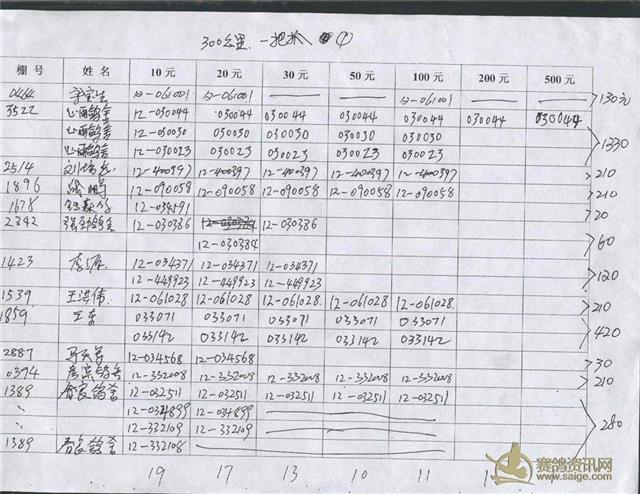 300公里 一把抓 ①
棚号 姓名 10元 20元 30元 50元 100元 200元 500元
0464 12-061001 12-061001 — — 12-061001 — — 130元
3522 心雨鸽舍 12-030044 030044 030044 030044 030044 030044 030044
心雨鸽舍 12-030030 030030 030030 030030 030030 1330
心雨鸽舍 12-030023 030023 030023 030023 030023
2514 12-400397 12-400397 12-400397 12-400397 12-400397 210
1896 12-090058 12-090058 12-090058 12-090058 12-090058 210
1678 12-034591 20
2342 12-030386 12-030386
12-030384 60
1423 12-034371 12-034371 12-034371
12-449923 12-449923 12-449923 120
1539 王洪伟 12-061028 12-061028 12-061028 12-061028 12-061028 210
1859 王东 033071 033071 033071 033071 033071
033142 033142 033142 033142 033142 420
2887 12-034568 12-034568 30
0374 12-332008 12-332008 12-332008 12-332008 12-332008 210
1389 12-032511 12-032511 12-032511 12-032511 12-032511
12-034899 12-034899 280
12-332109 12-332109
1389 12-332108
19 17 13 10 11 1
赛鸽资讯网
www.saige.com